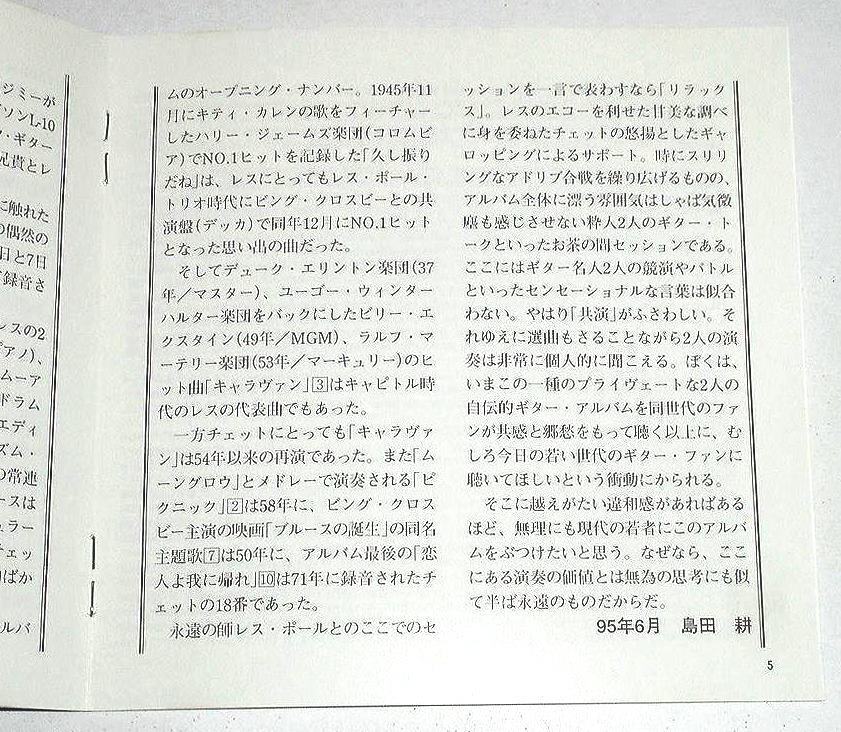 ジミーが
ソンL-10
・ギター
兄貴とレ
に触れた
の偶然の
日と7日
録音さ
レスの2
ピアノ)、
ムーア
ドラム
エディ
ズム・
の常連
ースは
ュラー
チェッ
ばか
ルバ
ムのオープニング・ナンバー。1945年11
月にキティ・カレンの歌をフィーチャー
したハリー・ジェームズ楽団(コロムビ
ア)でNO.1ヒットを記録した「久し振り
だね」は、レスにとってもレス・ポール・
トリオ時代にビング・クロスビーとの共
演盤(デッカ)で同年12月にNO.1ヒット
となった思い出の曲だった。
そしてデューク・エリントン楽団(37
年/マスター)、ユーゴー・ウィンター
ハルター楽団をバックにしたビリー・エ
クスタイン(49年/MGM)、ラルフ・マ
ーテリー楽団(53年/マーキュリー)のヒ
ット曲「キャラヴァン」3はキャピトル時
代のレスの代表曲でもあった。
一方チェットにとっても「キャラヴァ
ン」は54年以来の再演であった。また「ム
ーングロウ」とメドレーで演奏される「ピ
クニック」2は58年に、ビング・クロス
ビー主演の映画「ブルースの誕生」の同名
主題歌7は50年に、アルバム最後の「恋
人よ我に帰れ」10は71年に録音されたチ
ェットの18番であった。
永遠の師レス・ポールとのここでのセ
ッションを一言で表わすなら「リラック
ス」。レスのエコーを利せた甘美な調べ
に身を委ねたチェットの悠揚としたギャ
ロッピングによるサポート。時にスリリ
ングなアドリブ合戦を繰り広げるものの、
アルバム全体に漂う雰囲気はしゃば気微
塵も感じさせない粋人2人のギター・ト
ークといったお茶の間セッションである。
ここにはギター名人2人の競演やバトル
といったセンセーショナルな言葉は似合
わない。やはり「共演」がふさわしい。そ
れゆえに選曲もさることながら2人の演
奏は非常に個人的に聞こえる。ぼくは、
いまこの一種のプライヴェートな2人の
自伝的ギター・アルバムを同世代のファ
ンが共感と郷愁をもって聴く以上に、む
しろ今日の若い世代のギター・ファンに
聴いてほしいという衝動にかられる。
そこに越えがたい違和感があればある
ほど、無理にも現代の若者にこのアルバ
ムをぶつけたいと思う。なぜなら、ここ
にある演奏の価値とは無為の思考にも似
て半ば永遠のものだからだ。
95年6月 島田 耕
5